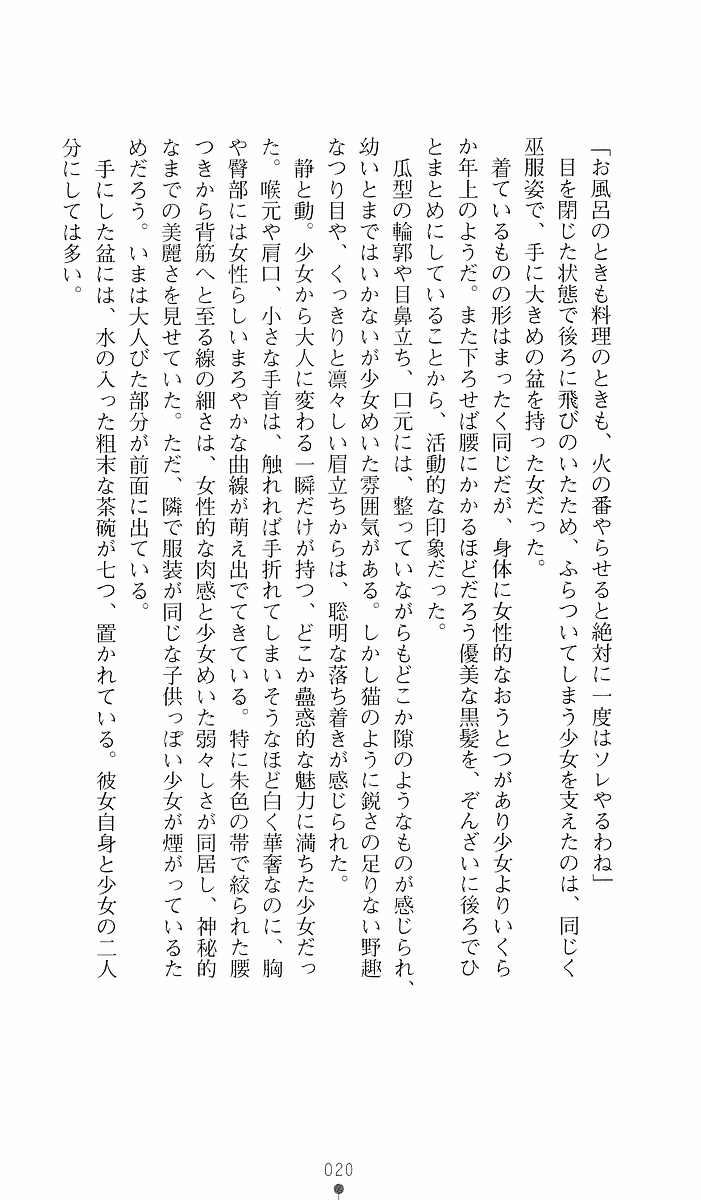 「お風呂のときも料理のときも、火の番やらせると絶対に一度はソレやるわね」
目を閉じた状態で後ろに飛びのいたため、ふらついてしまう少女を支えたのは、同じく
巫服姿で、手に大きめの盆を持った女だった。
着ているものの形はまったく同じだが、身体に女性的なおうとつがあり少女よりいくら
か年上のようだ。また下ろせば腰にかかるほどだろう優美な黒髪を、ぞんざいに後ろでひ
とまとめにしていることから、活動的な印象だった。
瓜型の輪郭や目鼻立ち、口元には、整っていながらもどこか隙のようなものが感じられ、
幼いとまではいかないが少女めいた雰囲気がある。しかし猫のように鋭さの足りない野趣
なつり目や、くっきりと凛々しい眉立ちからは、聡明な落ち着きが感じられた。
静と動。少女から大人に変わる一瞬だけが持つ、どこか蠱惑的な魅力に満ちた少女だっ
た。喉元や肩口、小さな手首は、触れれば手折れてしまいそうなほど白く華奢なのに、胸
や臀部には女性らしいまろやかな曲線が萌え出でてきている。特に朱色の帯で絞られた腰
つきから背筋へと至る線の細さは、女性的な肉感と少女めいた弱々しさが同居し、神秘的
なまでの美麗さを見せていた。ただ、隣で服装が同じな子供っぽい少女が煙がっているた
めだろう。いまは大人びた部分が前面に出ている。
手にした盆には、水の入った粗末な茶碗が七つ、置かれている。彼女自身と少女の二人
分にしては多い。
020